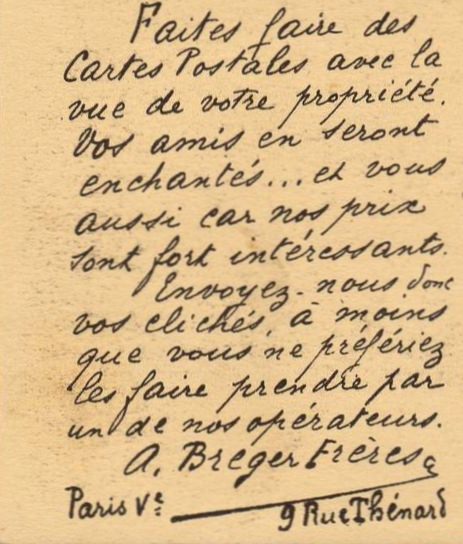 Faites faire des
Cartes Postales avec la
vue de votre propriété.
Vos amis en seront
enchantés... et vous
aussi car nos prix
sont fort intéressants.
Envoyez-nous donc
vos clichés, à moins
que vous ne préfériez
les faire prendre par
un de nos opérateurs.
A. Breger Frères
Paris Ve 9 Rue Thénard